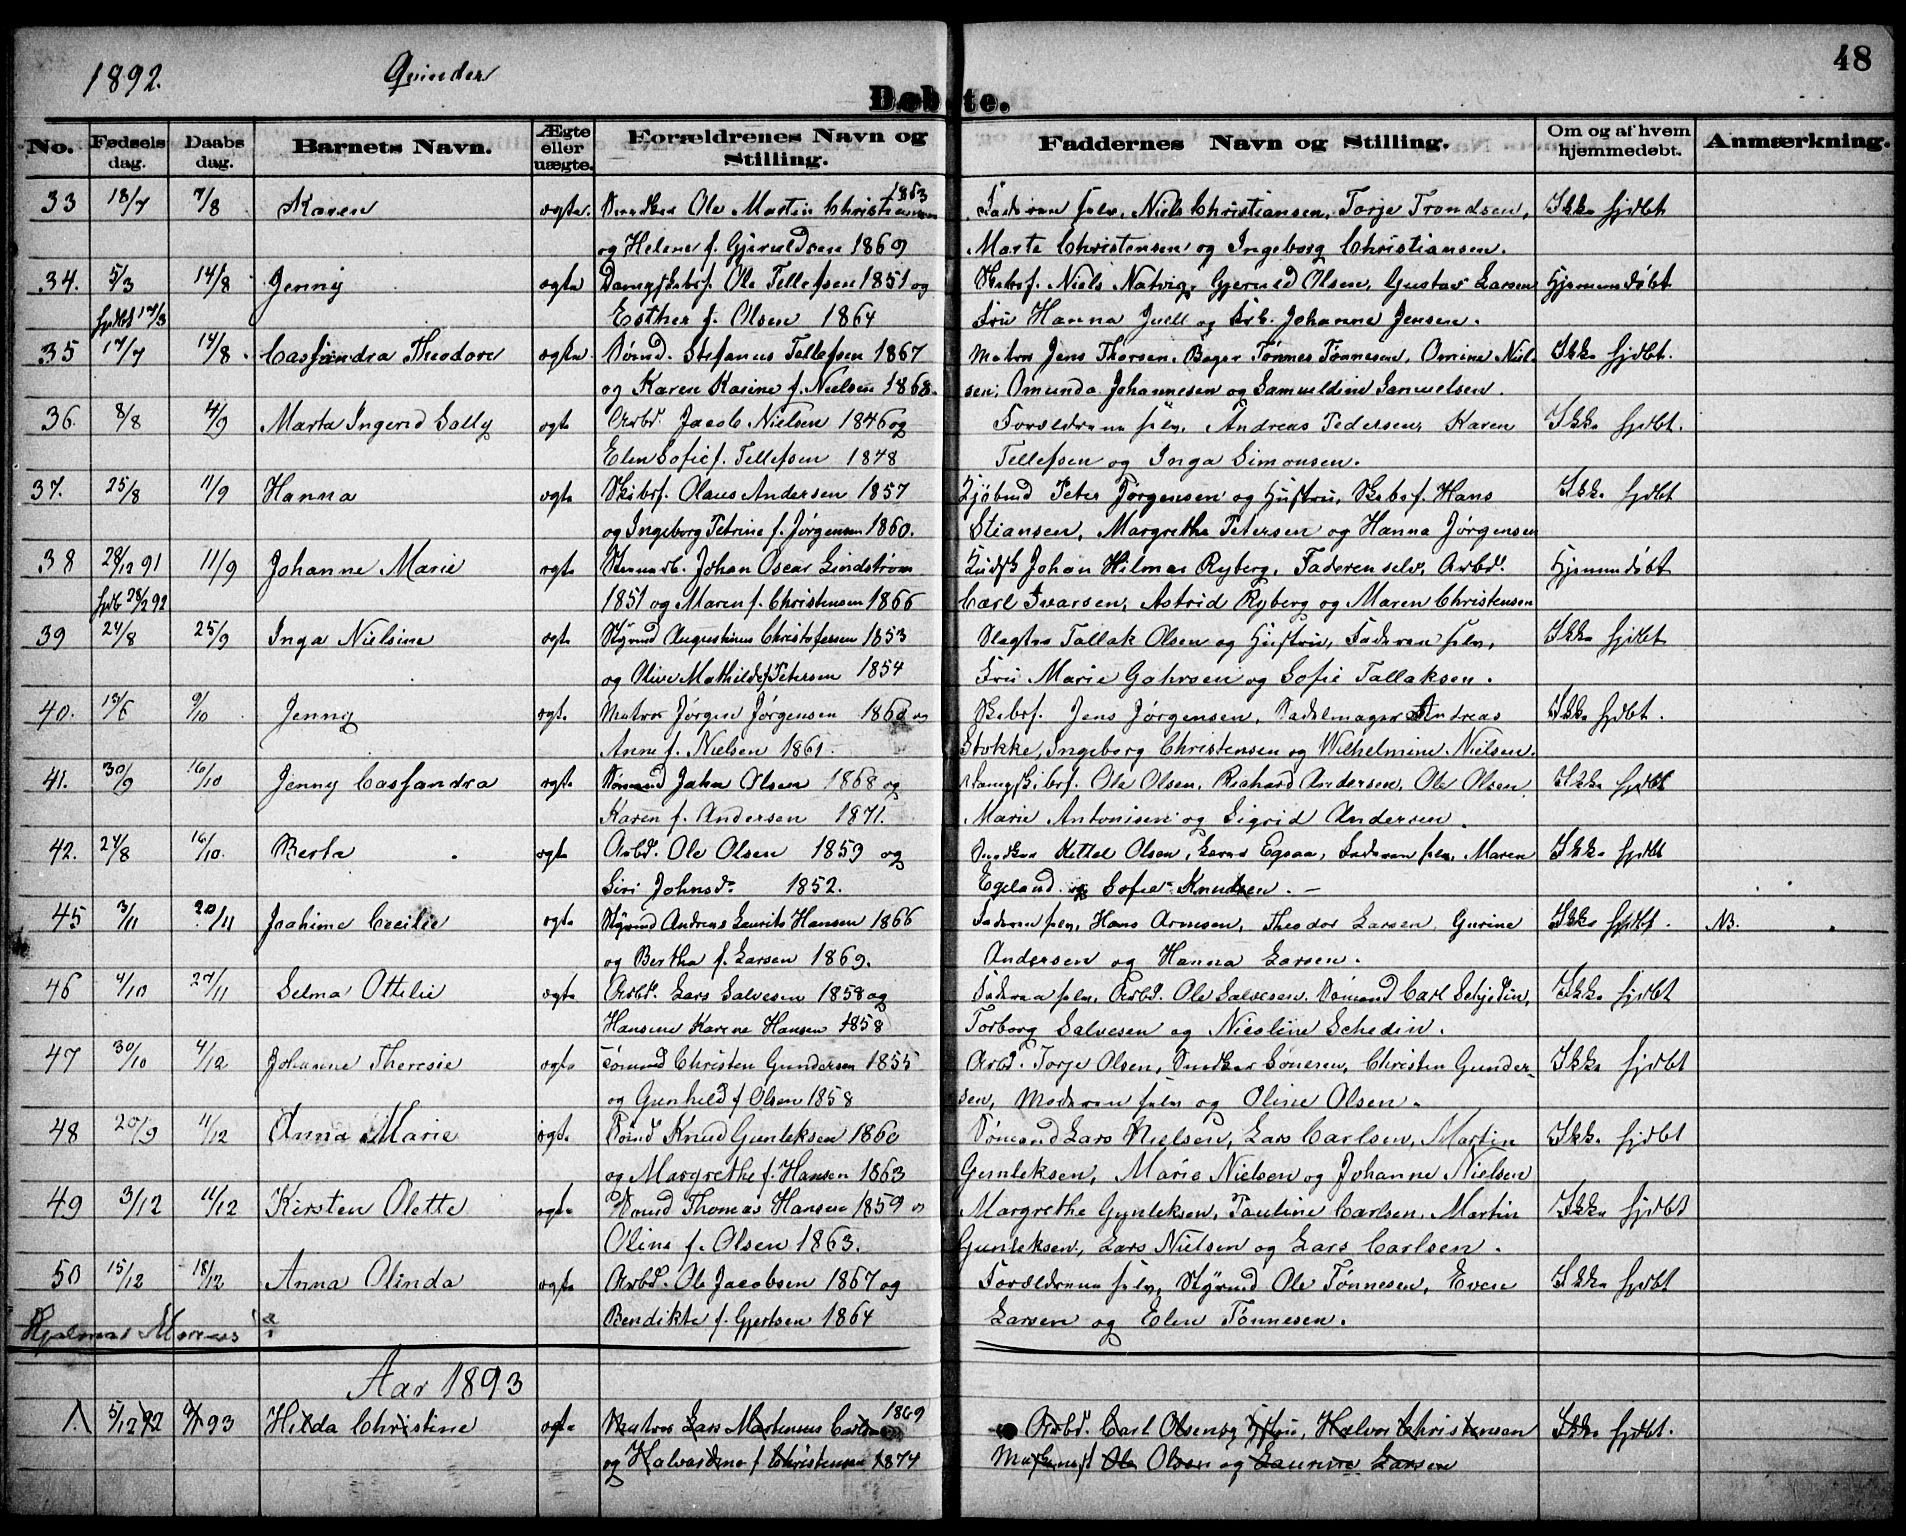 1892. Qvinder 48
Døbte.
No. Fødselsdag. Daabsdag. Barnets Navn. Ægte eller uægte. Forældrenes Navn og Stilling. Faddernes Navn og Stilling. Om og af hvem hjemmedøbt. Anmærkning.
33 18/7 7/8 Karen ægte. Snedker Ole Martin Christiansen 1863 Faderen selv, Niels Christiansen, Torje Trondsen, Ikke hjdbt
og Helene f. Gjeruldsen 1869 Marte Christensen og Ingeborg Christiansen.
34. 5/3 14/8 Jenny ægte Dampskbsf. Ole Tellefsen 1851 og Skbsf. Niels Natvig, Gjeruld Olsen, Gustav Larsen Hjemmedøbt
hjdbt 17/3 Esther f. Olsen 1864 Fru Hanna Juell og Johanne Jensen.
35 17/7 14/8. Cassandra Theodore ægte. Sømd. Stefanus Tellefsen 1867 Matros Jens Thorsen, Bager Tønnes Tønnesen, Omine Niel- Ikke hjdbt.
og Karen Kasine f. Nielsen 1868. sen, Omunda Johannesen og Samueldine Samuelsen.
36 8/8 4/9 Marta Ingerid Sally ægte Arbd. Jacob Nielsen 1846 og Forældrene selv, Andreas Pedersen, Karen Ikke hjdbt.
Elen Sofie f. Tellefsen 1848 Tellefsen og Inga Simonsen.
37. 25/8 11/9 Hanna ægte Skbsf. Olaus Andersen 1857 Kjøbmd Peter Jørgensen og Hustru, Skbsf. Hans Ikke hjdbt
og Ingeborg Petrine f. Jørgensen 1860. Stiansen, Margrethe Petersen og Hanna Jørgensen
38 28/12 91 11/9 Johanne Marie ægte Johan Oscar Lindstrøm Johan Hilmar Ryberg, Faderen selv, Arbd. Hjemmedøbt
hjdb 28/2 92 1851 og Maren f. Christensen 1866 Carl Ivarsen, Astrid Ryberg og Maren Christensen
39 24/8 25/9 Inga Nielsine ægte Styrmd Augustinus Christofersen 1853 Slagter Tallak Olsen og Hustru, Faderen selv, Ikke hjdbt
og Olive Mathilde f. Petersen 1854 Fru Marie Gahrsen og Sofie Tallaksen.
40. 13/6 9/10 Jenny ægte. Matros Jørgen Jørgensen og Skbsf. Jens Jørgensen, Sadelmager Andreas Ikke hjdbt.
Anne f. Nielsen 1861. Stokke, Ingeborg Christensen og Wilhelmine Nielsen.
41. 30/9 16/10 Jenny Cassandra ægte Sømand Jahn Olsen 1868 og Dampskibsf. Ole Olsen, Richard Andersen, Ole Olsen Ikke hjdbt
Karen f. Andersen 1871. Marie Antonisen og Sigrid Andersen.
42. 24/8 16/10. Berta ægte Arbd. Ole Olsen 1853 og Snedker Kittel Olsen, Egeaa, Faderen selv, Maren Ikke hjdbt
Siri Johnsd. 1852. Egeland og Sofie Knudsen. —
45 3/11 20/11 Joahime Cecilie ægte Styrmd Andreas Laurits Hansen 1866 Faderen selv, Hans Arnesen, Theodor Larsen, Gurine Ikke hjdbt. NB.
og Bertha f. Larsen 1869. Andersen og Hanna Larsen.
46 4/10 27/11 Selma Ottilie ægte Arbd. Lars Salvesen 1858 og Faderen selv, Arbd. Ole Salvesen, Sømand Carl Schjedin, Ikke hjdbt
Hansine Karene Hansen 1858 Torborg Salvesen og Nicoline Schedin.
47 30/10 4/12 Johanne Theresie ægte Sømand Christen Gundersen 1855 Arbd. Torje Olsen, Snedker Sønesen, Christen Gunder- Ikke hjdbt
og Gunhild f Olsen 1858 sen, Moderen selv og Oline Olsen.
48 20/9 11/12 Anna Marie ægte. Sømd Knud Gunleksen 1860 Sømand Lars Nielsen, Lars Carlsen, Martin Ikke hjdbt
og Margrethe f. Hansen 1863 Gunleksen, Marie Nielsen og Johanne Nielsen
49 3/12 11/12 Kirsten Olette ægte Sømd Thomas Hansen 1859 og Margrethe Gunleksen, Pauline Carlsen, Martin Ikke hjdbt
Oline f. Olsen 1863. Gunleksen, Lars Nielsen og Lars Carlsen.
50 15/12 18/12 Anna Olinda ægte Arbd. Ole Jacobsen 1867 og Forældrene selv, Styrmd Ole Tønnesen, Even Ikke hjdbt
Hjalmar Bendikte f. Gjertsen 1864 Larsen og Elen Tønnesen.
Aar 1893
1. 5/12 92 93 Hilda Christine ægte Matros Lars Martenius 1869 Arbd. Carl Olsen og Hustru, Halvor Christensen Ikke hjdbt.
og Halvardine f Christensen 1874 Ole Olsen og Laurine Larsen